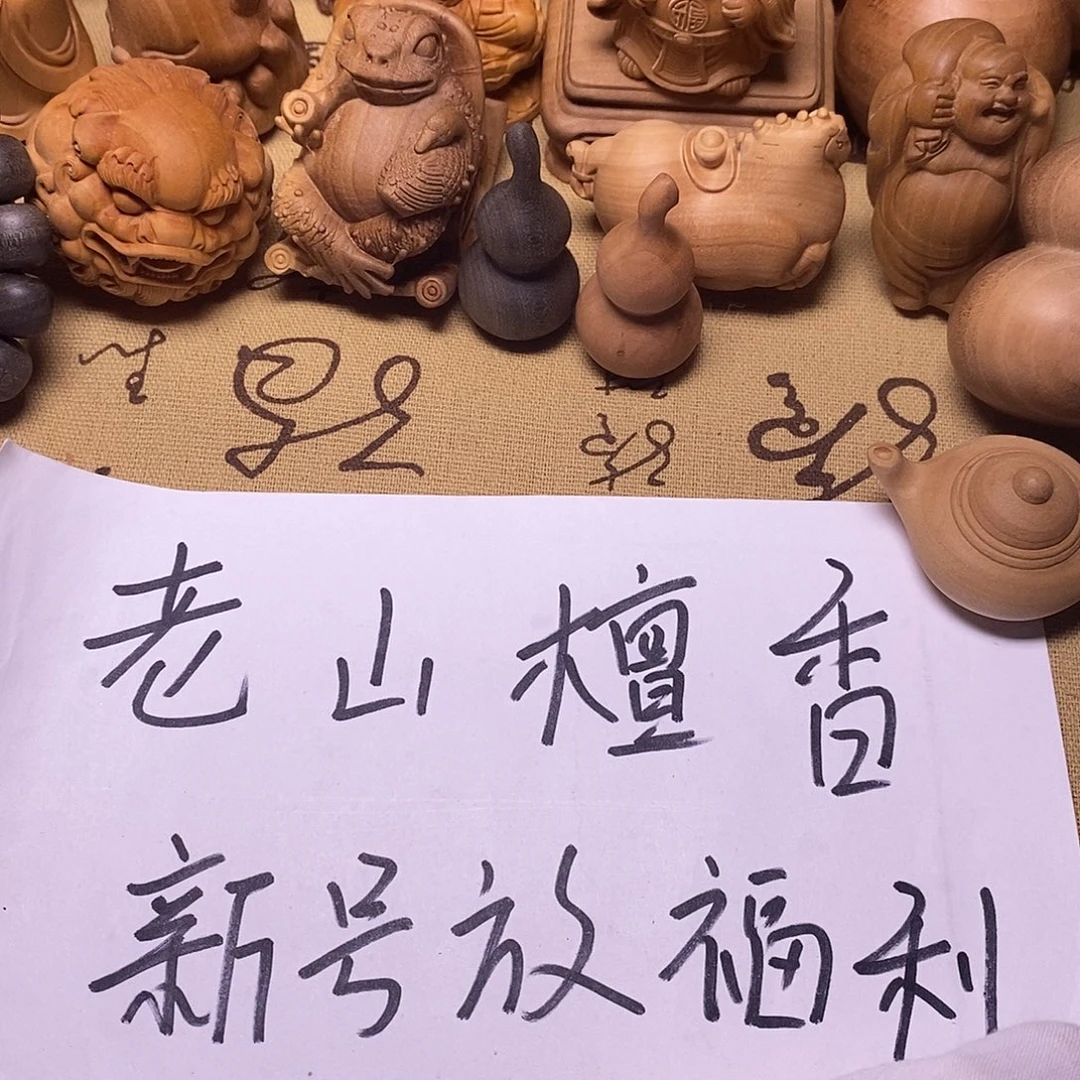 福
老山檀香
新号放福利